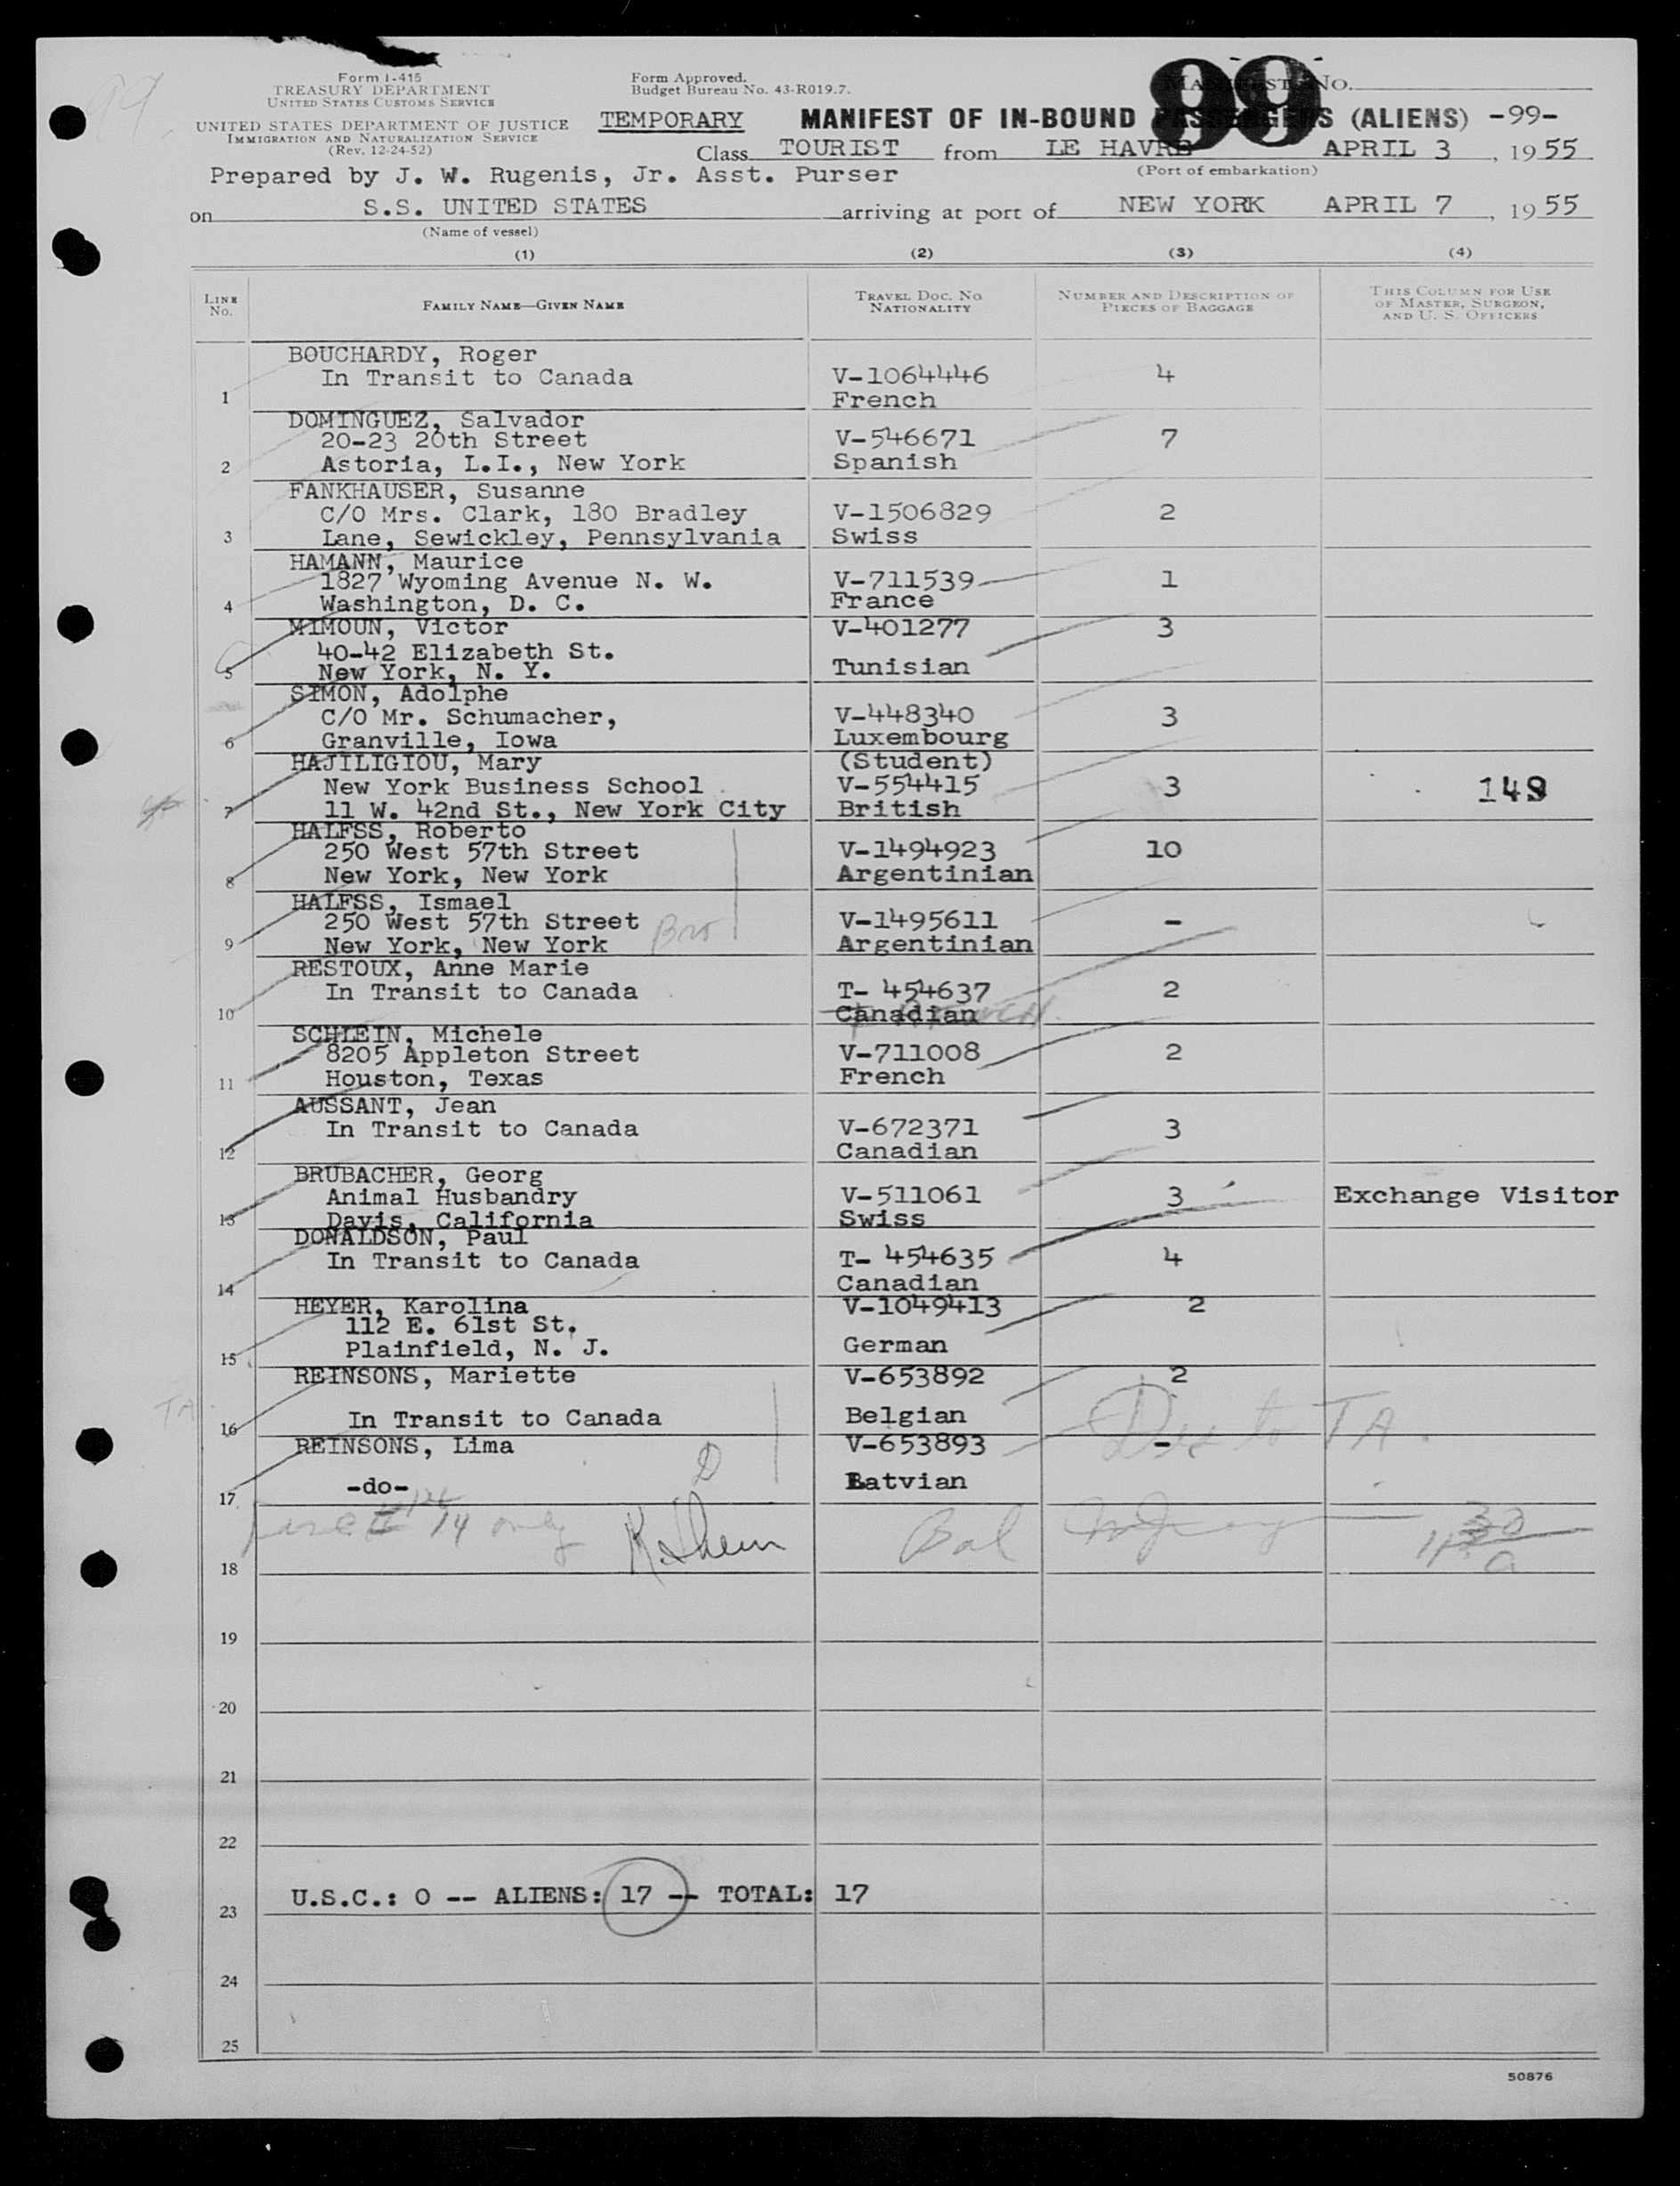 Form I-415
TREASURY DEPARTMENT
UNITED STATES CUSTOMS SERVICE
UNITED STATES DEPARTMENT OF JUSTICE
IMMIGRATION AND NATURALIZATION SERVICE
(Rev. 12-24-52)
Form Approved.
Budget Bureau No. 43-R019.7.
MANIFEST NO.
99
TEMPORARY MANIFEST OF IN-BOUND PASSENGERS (ALIENS) -99-
Class TOURIST from LE HAVRE APRIL 3, 1955
(Port of embarkation)
Prepared by J. W. Rugenis, Jr. Asst. Purser
on S.S. UNITED STATES arriving at port of NEW YORK APRIL 7, 1955
(Name of vessel)
(1) (2) (3) (4)
LINE No. FAMILY NAME—GIVEN NAME TRAVEL DOC. NO. NATIONALITY NUMBER AND DESCRIPTION OF PIECES OF BAGGAGE THIS COLUMN FOR USE OF MASTER, SURGEON, AND U. S. OFFICERS
BOUCHARDY, Roger
In Transit to Canada V-1064446 4
1 French
DOMINGUEZ, Salvador
20-23 20th Street V-546671 7
2 Astoria, L.I., New York Spanish
FANKHAUSER, Susanne
C/O Mrs. Clark, 180 Bradley V-1506829 2
3 Lane, Sewickley, Pennsylvania Swiss
HAMANN, Maurice
1827 Wyoming Avenue N. W. V-711539 1
4 Washington, D. C. France
MIMOUN, Victor V-401277 3
40-42 Elizabeth St.
5 New York, N. Y. Tunisian
SIMON, Adolphe
C/O Mr. Schumacher, V-448340 3
6 Granville, Iowa Luxembourg
HAJILIGIOU, Mary (Student)
New York Business School V-554415 3 149
7 11 W. 42nd St., New York City British
HALFSS, Roberto
250 West 57th Street V-1494923 10
8 New York, New York Argentinian
HALFSS, Ismael
250 West 57th Street V-1495611 -
9 New York, New York Bro Argentinian
RESTOUX, Anne Marie
In Transit to Canada T- 454637 2
10 Canadian
SCHLEIN, Michele
8205 Appleton Street V-711008 2
11 Houston, Texas French
AUSSANT, Jean
In Transit to Canada V-672371 3
12 Canadian
BRUBACHER, Georg
Animal Husbandry V-511061 3 Exchange Visitor
13 Davis, California Swiss
DONALDSON, Paul
In Transit to Canada T- 454635 4
14 Canadian
HEYER, Karolina V-1049413 2
112 E. 61st St.
15 Plainfield, N. J. German
REINSONS, Mariette V-653892 2
TA
16 In Transit to Canada Belgian
REINSONS, Lima V-653893 - Des to TA.
D
17 -do- Latvian
14 only Bal
18
19
20
21
22
23 U.S.C.: 0 -- ALIENS: 17 -- TOTAL: 17
24
25
50876